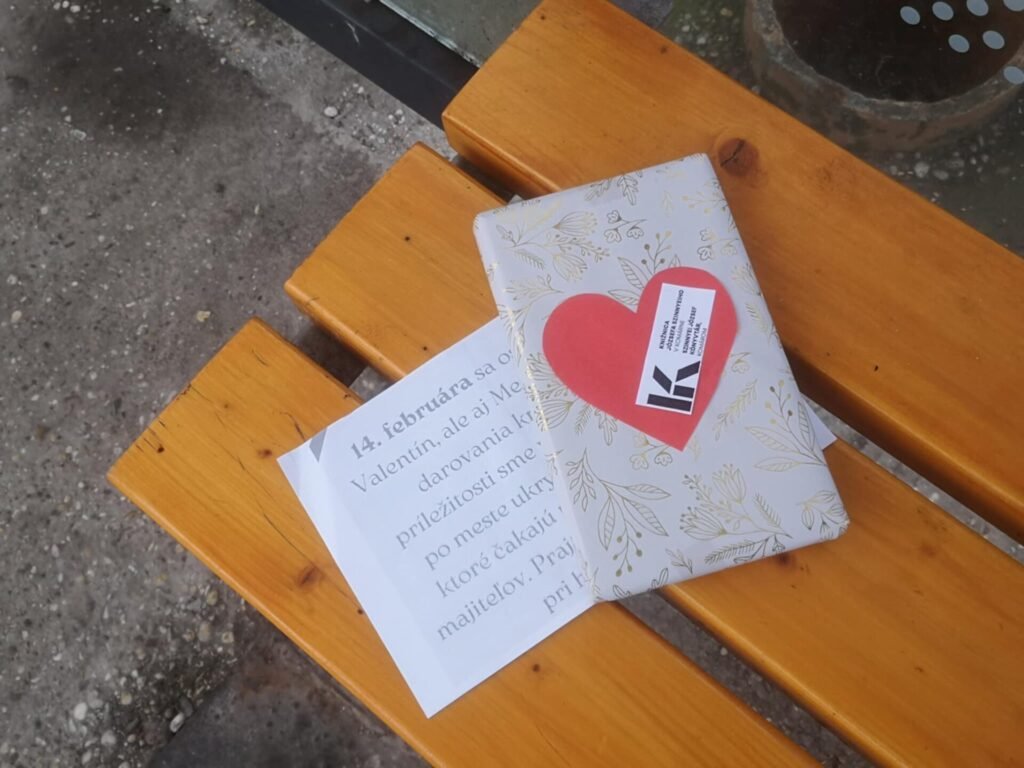 14. februára sa
Valentín, ale aj
darovania
príležitosti sme
po meste
ktoré čakajú
majiteľov.
pri
KNIŽNICA
JÓZSEFA SZINNYEIHO
V KOMÁRNE
SZINNYEI JÓZSEF
KÖNYVTÁR,
KOMÁROM